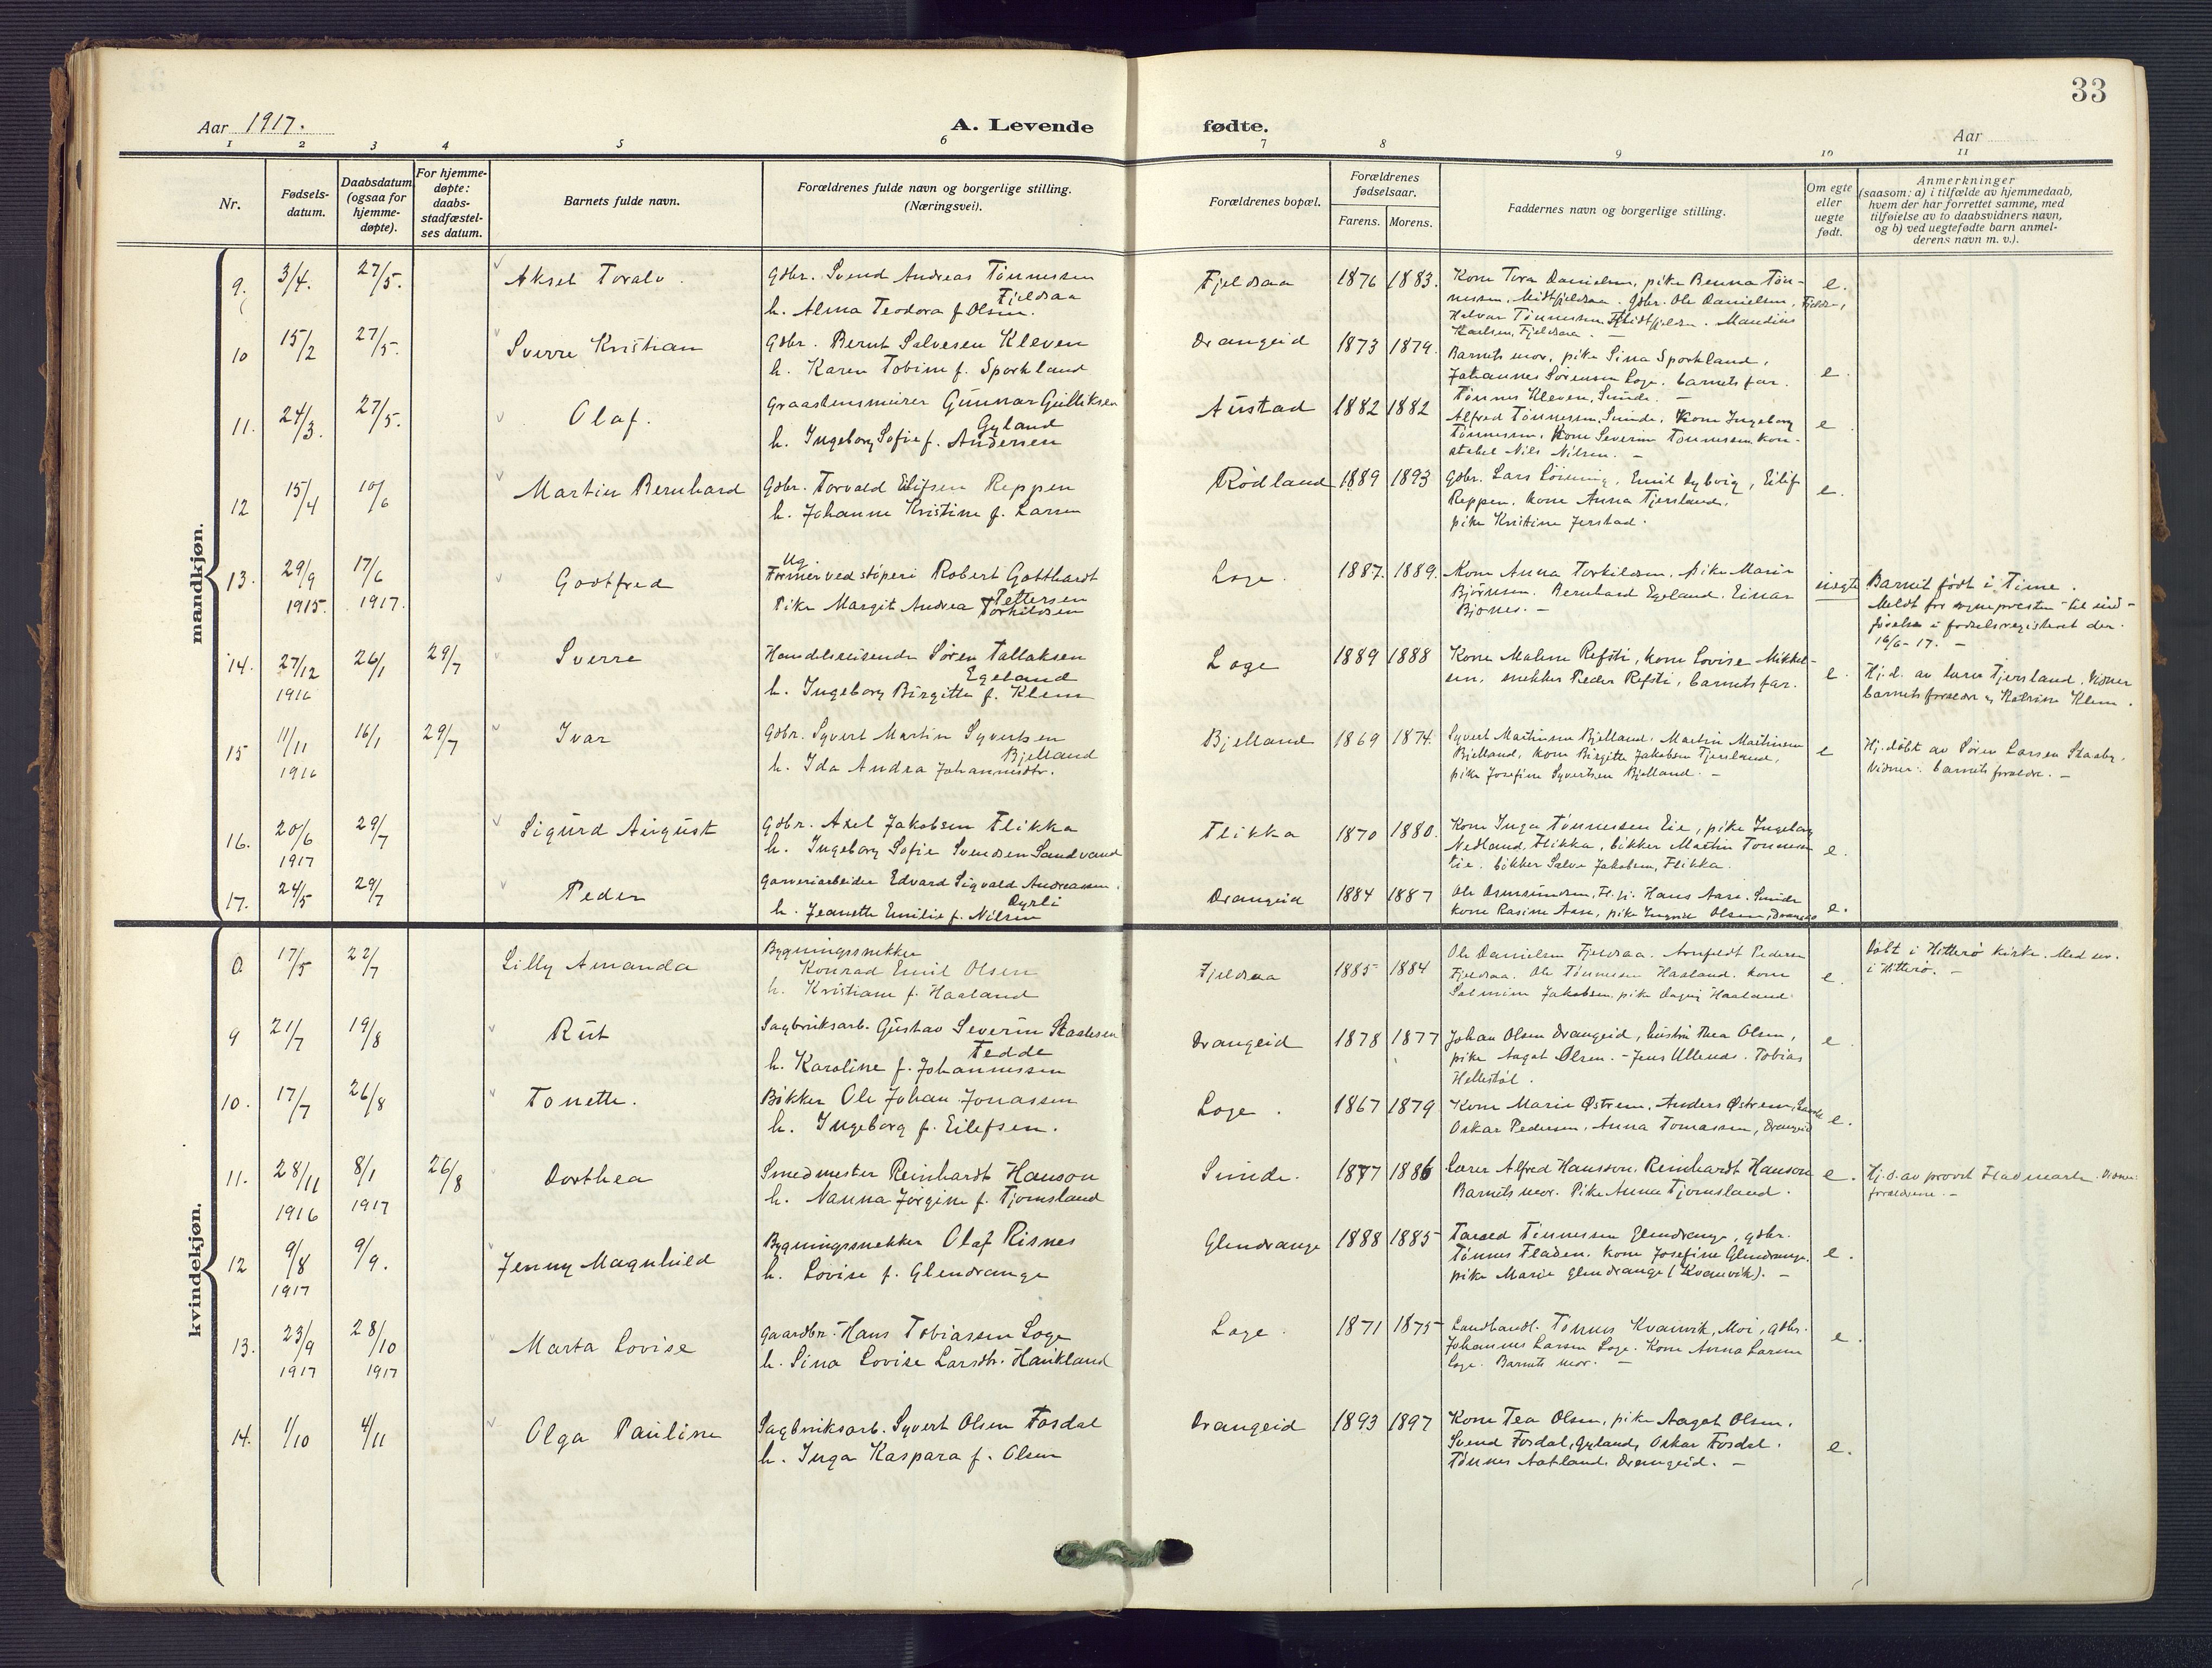 33
Aar 1917.
A. Levende
fødte.
Aar
1 2 3 4 5 6 7 8 9 10 11
Nr.
Fødsels-
datum.
Daabsdatum
(ogsaa for
hjemme-
døpte).
For hjemme-
døpte:
daabs-
stadfæstel-
ses datum.
Barnets fulde navn.
Forældrenes fulde navn og borgerlige stilling.
(Næringsvei).
Forældrenes bopæl.
Forældrenes
fødselsaar.
Farens. Morens.
Faddernes navn og borgerlige stilling.
Om egte
eller
uegte
født.
Anmerkninger
(saasom: a) i tilfælde av hjemmedaab,
hvem der har forrettet samme, med
tilføielse av to daabsvidners navn,
og b) ved uegtefødte barn anmel-
derens navn m. v.).
mandkjøn.
9. 3/4. 27/5. Aksel Toralv. Gdbr. Svend Andreas Tønnessen
Fjeldsaa
h. Alma Teodora f. Olsen.
Fjeldsaa 1876 1883. Kone Tora Danielsen, pike Benna Tøn-
nessen, Midtfjeldsaa. Gdbr. Ole Danielsen, Fjelds.,
Halvar Tønnessen, Midtfjelds. Maudius
Karlsen, Fjeldsaa. —
e.
10 15/2 27/5. Sverre Kristian Gdbr. Bernt Salvesen Kleven
h. Karen Tobine f. Sporkland
Drangeid 1873 1879. Barnets mor, pike Sina Sporkland,
Johannes Sørensen Loge. barnets far.
Tønnes Kleven, Sunde. —
e.
11. 24/3. 27/5. Olaf. Graastensmurer Gunnar Gulliksen
Gyland
h. Ingeborg Sofie f. Andersen
Austad 1882 1882 Alfred Tønnessen, Sunde, Kone Ingeborg
Tønnessen, Kone Severine Tønnessen, kon-
stabel Nils Nilsen. —
e.
12 15/4 10/6 Martin Bernhard Gdbr. Torvald Eilifsen Reppen
h. Johanne Kristine f. Larsen
Rødland 1889 1893 Gdbr. Lars Løining, Emil Dybvig, Eilif
Reppen, kone Anna Tjersland,
pike Kristine Jerstad.
e.
13. 29/9 17/6 Godtfred Ug.
1915. 1917. Former ved støperi Robert Gotthardt
Pettersen
Pike Margit Andrea Torkildsen
Loge. 1887. 1889. Kone Anna Torkildsen, pike Marie
Bjørnsen. Bernhard Egeland. Einar
Bjønes. —
uegte Barnet født i Time.
Meldt for sogneprestn til ind-
førelse i fødselsregisteret den
16/6-17. —
14. 27/12 26/1 29/7 Sverre Handelsreisende Søren Tallaksen
1916 Egeland
h. Ingeborg Birgitte f. Klem
Loge 1889 1888 Kone Malene Refsti, kone Lovise Mikkel-
sen, snekker Peder Refsti, barnets far.
e. Hj.d. av lærer Tjersland. Vidner
barnets forældre og Katrine Klem.
15 11/11 16/1 29/7 Ivar Gdbr. Syvert Martin Syvertsen
1916 Bjelland
h. Ida Andrea Johannesdtr.
Bjelland 1869 1874. Syvert Martinsen Bjelland, Martin Martinsen
Bjelland, kone Birgitte Jakobsen Tjersland,
pike Josefine Syvertsen Bjelland. —
e Hj.døbt av Søren Larsen Staaby.
Vidner: barnets forældre. —
16. 20/6 29/7 Sigurd August Gdbr. Axel Jakobsen Flikka
1917 h. Ingeborg Sofie Svendsen Sandvand
Flikka 1870 1880. Kone Inga Tønnessen Eie, pike Ingeborg
Nedland, Flikka, bøkker Martin Tønnessen
Eie. bøkker Salve Jakobsen, Flikka.
e.
17. 24/5 29/7 Peder Garveriarbeider Edvard Sigvald Andreassen
Dyrli
h. Jeanette Emilie f. Nilsen
Drangeid 1884 1887 Ole Osmundsen, Fl.fj. Hans Aase. Sunde
kone Rasine Aase, pike Ingrid Olsen, Drangeid
e.
kvindekjøn.
8. 17/5 22/7 Lilly Amanda Bygningssnekker
Konrad Emil Olsen
h. Kristiane f. Haaland
Fjeldsaa 1885 1884 Ole Danielsen Fjeldsaa. Arnfeldt Pedersen
Fjeldsaa. Ole Tønnesen Haaland. kone
Salmine Jakobsen, pike Dagny Haaland.
e. Døbt i Hitterø kirke. Med nr.
i Hitterø. —
9 21/7 19/8 Rut Sagbruksarb. Gustav Severin Staalesen
Tedde
h. Karoline f. Johannessen
Drangeid 1878 1877 Johan Olsen Drangeid, hustru Thea Olsen,
pike Aagot Olsen. - Jens Ullenes. Tobias
Hellestøl.
e.
10. 17/7 26/8 Tonette. Bøkker Ole Johan Jonassen
h. Ingeborg f. Eilefsen.
Loge. 1867 1879 Kone Marie Østrem. Anders Østrem,
Oskar Pedersen, Anna Tomassen, Drangeid
e.
11. 28/11 8/1 26/8 Dorthea Smedmester Reinhardt Hanson
1916 1917 h. Nanna Jørgine f. Tjomsland
Sunde. 1877 1886 Lærer Alfred Hanson. Reinhardt Hanson
Barnets mor. Pike Anna Tjomsland.
e. Hj.d. av provst Fladmark. Vidner:
forældrene. —
12 9/8 9/9. Jenny Magnhild Bygningssnekker Olaf Risnes
1917 h. Lovise f. Glendrange
Glendrange 1888 1885 Taraed Tønnessen Glendrange, gdbr.
Tønnes Fladen. kone Josefine Glendrange.
pike Marie Glendrange (Kvanvik). —
e.
13. 23/9 28/10 Marta Lovise Gaardbr. Hans Tobiassen Loge
1917 1917 h. Sina Lovise Larsdtr. Haukland
Loge. 1871 1875 Landhandl. Tønnes Kvanvik, Moi, gdbr.
Johannes Larsen Loge. Kone Anna Larsen
Loge. Barnets mor. —
e.
14. 1/10 4/11 Olga Pauline Sagbruksarb. Syvert Olsen Fosdal
h. Inga Kaspara f. Olsen
Drangeid 1893 1897 Kone Tea Olsen, pike Aagot Olsen.
Svend Fosdal, Gyland, Oskar Fosdal.
Tønnes Aatland. Drangeid. —
e.